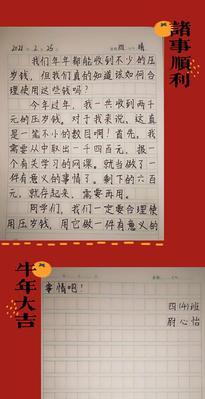 諸事順利
2021 . 2 . 25 周 晴
我们年年都能收到不少的压
岁钱，但我们真的知道该如何合
理使用这些钱吗？
今年过年，我一共收到两千
元的压岁钱。对于我来说，这真
是一笔不小的数目啊！首先，我
需要从中取出一千四百元，报一
个有关学习的网课。就当做了一
件有意义的事情了。剩下的六百
元，就存起来，需要再用。
同学们，我们一定要合理使
用压岁钱，用它做一件有意义的
牛年大吉
事情吧！
四(4)班
尉心怡